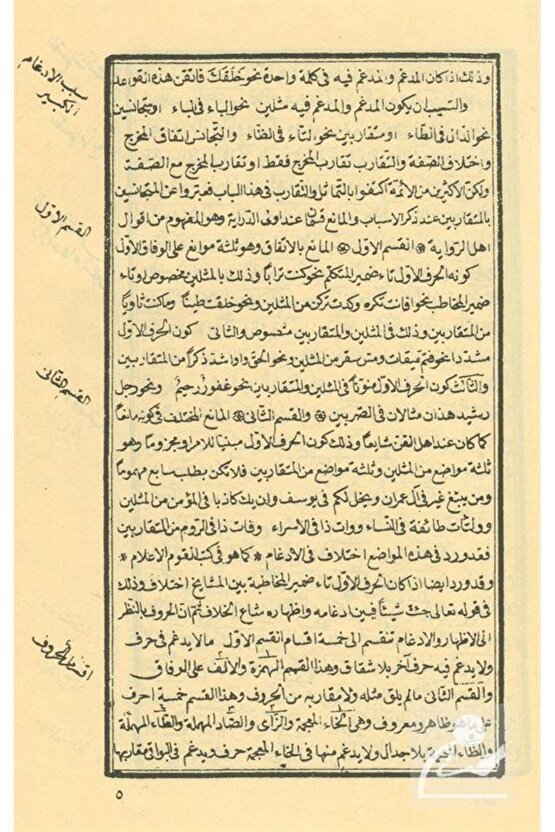 وذلك اذا كان المدغم والمدغم فيه في كلمة واحدة نحو خلقك فاتقن هذه القواعد
سبب الادغام الكبير
والسبب ان يكون المدغم والمدغم فيه مثلين نحو الباء في الباء او متجانسين
نحو الذال في الظاء او متقاربين نحو الثاء في الظاء والتجانس اتفاق المخرج
واختلاف الصفة والتقارب تقارب المخرج فقط او تقارب المخرج مع الصفة
ولكن الاكثرين من الائمة اكتفوا بالتماثل والتقارب في هذا الباب فعبروا عن المتجانسين
القسم الاول
بالمتقاربين عند ذكر الاسباب والمانع قسمان عند اولى الدراية وهو المفهوم من اقوال
اهل الرواية * القسم الاول * المانع بالاتفاق وهو ثلثة موانع على الوفاق الاول
كونه الحرف الاول تاء ضمير المتكلم نحو كنت ترابا وذلك بالمثلين مخصوص او تاء
ضمير المخاطب نحو افانت تكره وكدت تركن من المثلين ونحو خلقت طينا وما كنت ثاويا
من المتقاربين وذلك في المثلين والمتقاربين منصوص والثاني كون الحرف الاول
مشددا نحو فتم ميقات ومس سقر من المثلين ونحو الحق واو اشد ذكرا من المتقاربين
القسم الثاني
والثالث كون الحرف الاول منونا في المثلين والمتقاربين نحو غفور رحيم ونحو رجل
رشيد هذان مثالان في الضربين * والقسم الثاني * المانع المختلف في كونه مانعا
كما كان عند اهل الفن شايعا وذلك كون الحرف الاول مبنيا للامر او مجزوما وهو
ثلثة مواضع من المثلين وثلثة مواضع من المتقاربين فلا تكن بطلب سابع مهموما
ومن يبتغ غير في آل عمران ويخل لكم في يوسف وان يك كاذبا في المؤمن من المثلين
وولتأت طائفة في النساء ووات ذا في الاسراء وفات ذا في الروم من المتقاربين
فقد ورد في هذه المواضع اختلاف في الادغام * كما هو في كتب القوم الاعلام *
وقد ورد ايضا اذا كان الحرف الاول تاء ضمير المخاطبة بين المشايخ اختلاف وذلك
في قوله تعالى جئت شيئا فبين ادغامه واظهاره شاع الخلاف ثم ان الحروف بالنظر
اقسام الحروف
الى الاظهار والادغام تنقسم الى خمسة اقسام القسم الاول ما لا يدغم في حرف
ولا يدغم فيه حرف آخر بلا شقاق وهذا القسم الهمزة والالف على الوفاق
والقسم الثاني ما لم يلق مثله ولا مقاربه من الحروف وهذا القسم خمسة احرف
على ما هو ظاهر ومعروف وهي الخاء المعجمة والزاى والصاد المهملة والطاء المهملة
والظاء المعجمة بلا جدال ولا يدغم منها في الخاء المعجمة حرف ويدغم في البواقي مقاربها
٥